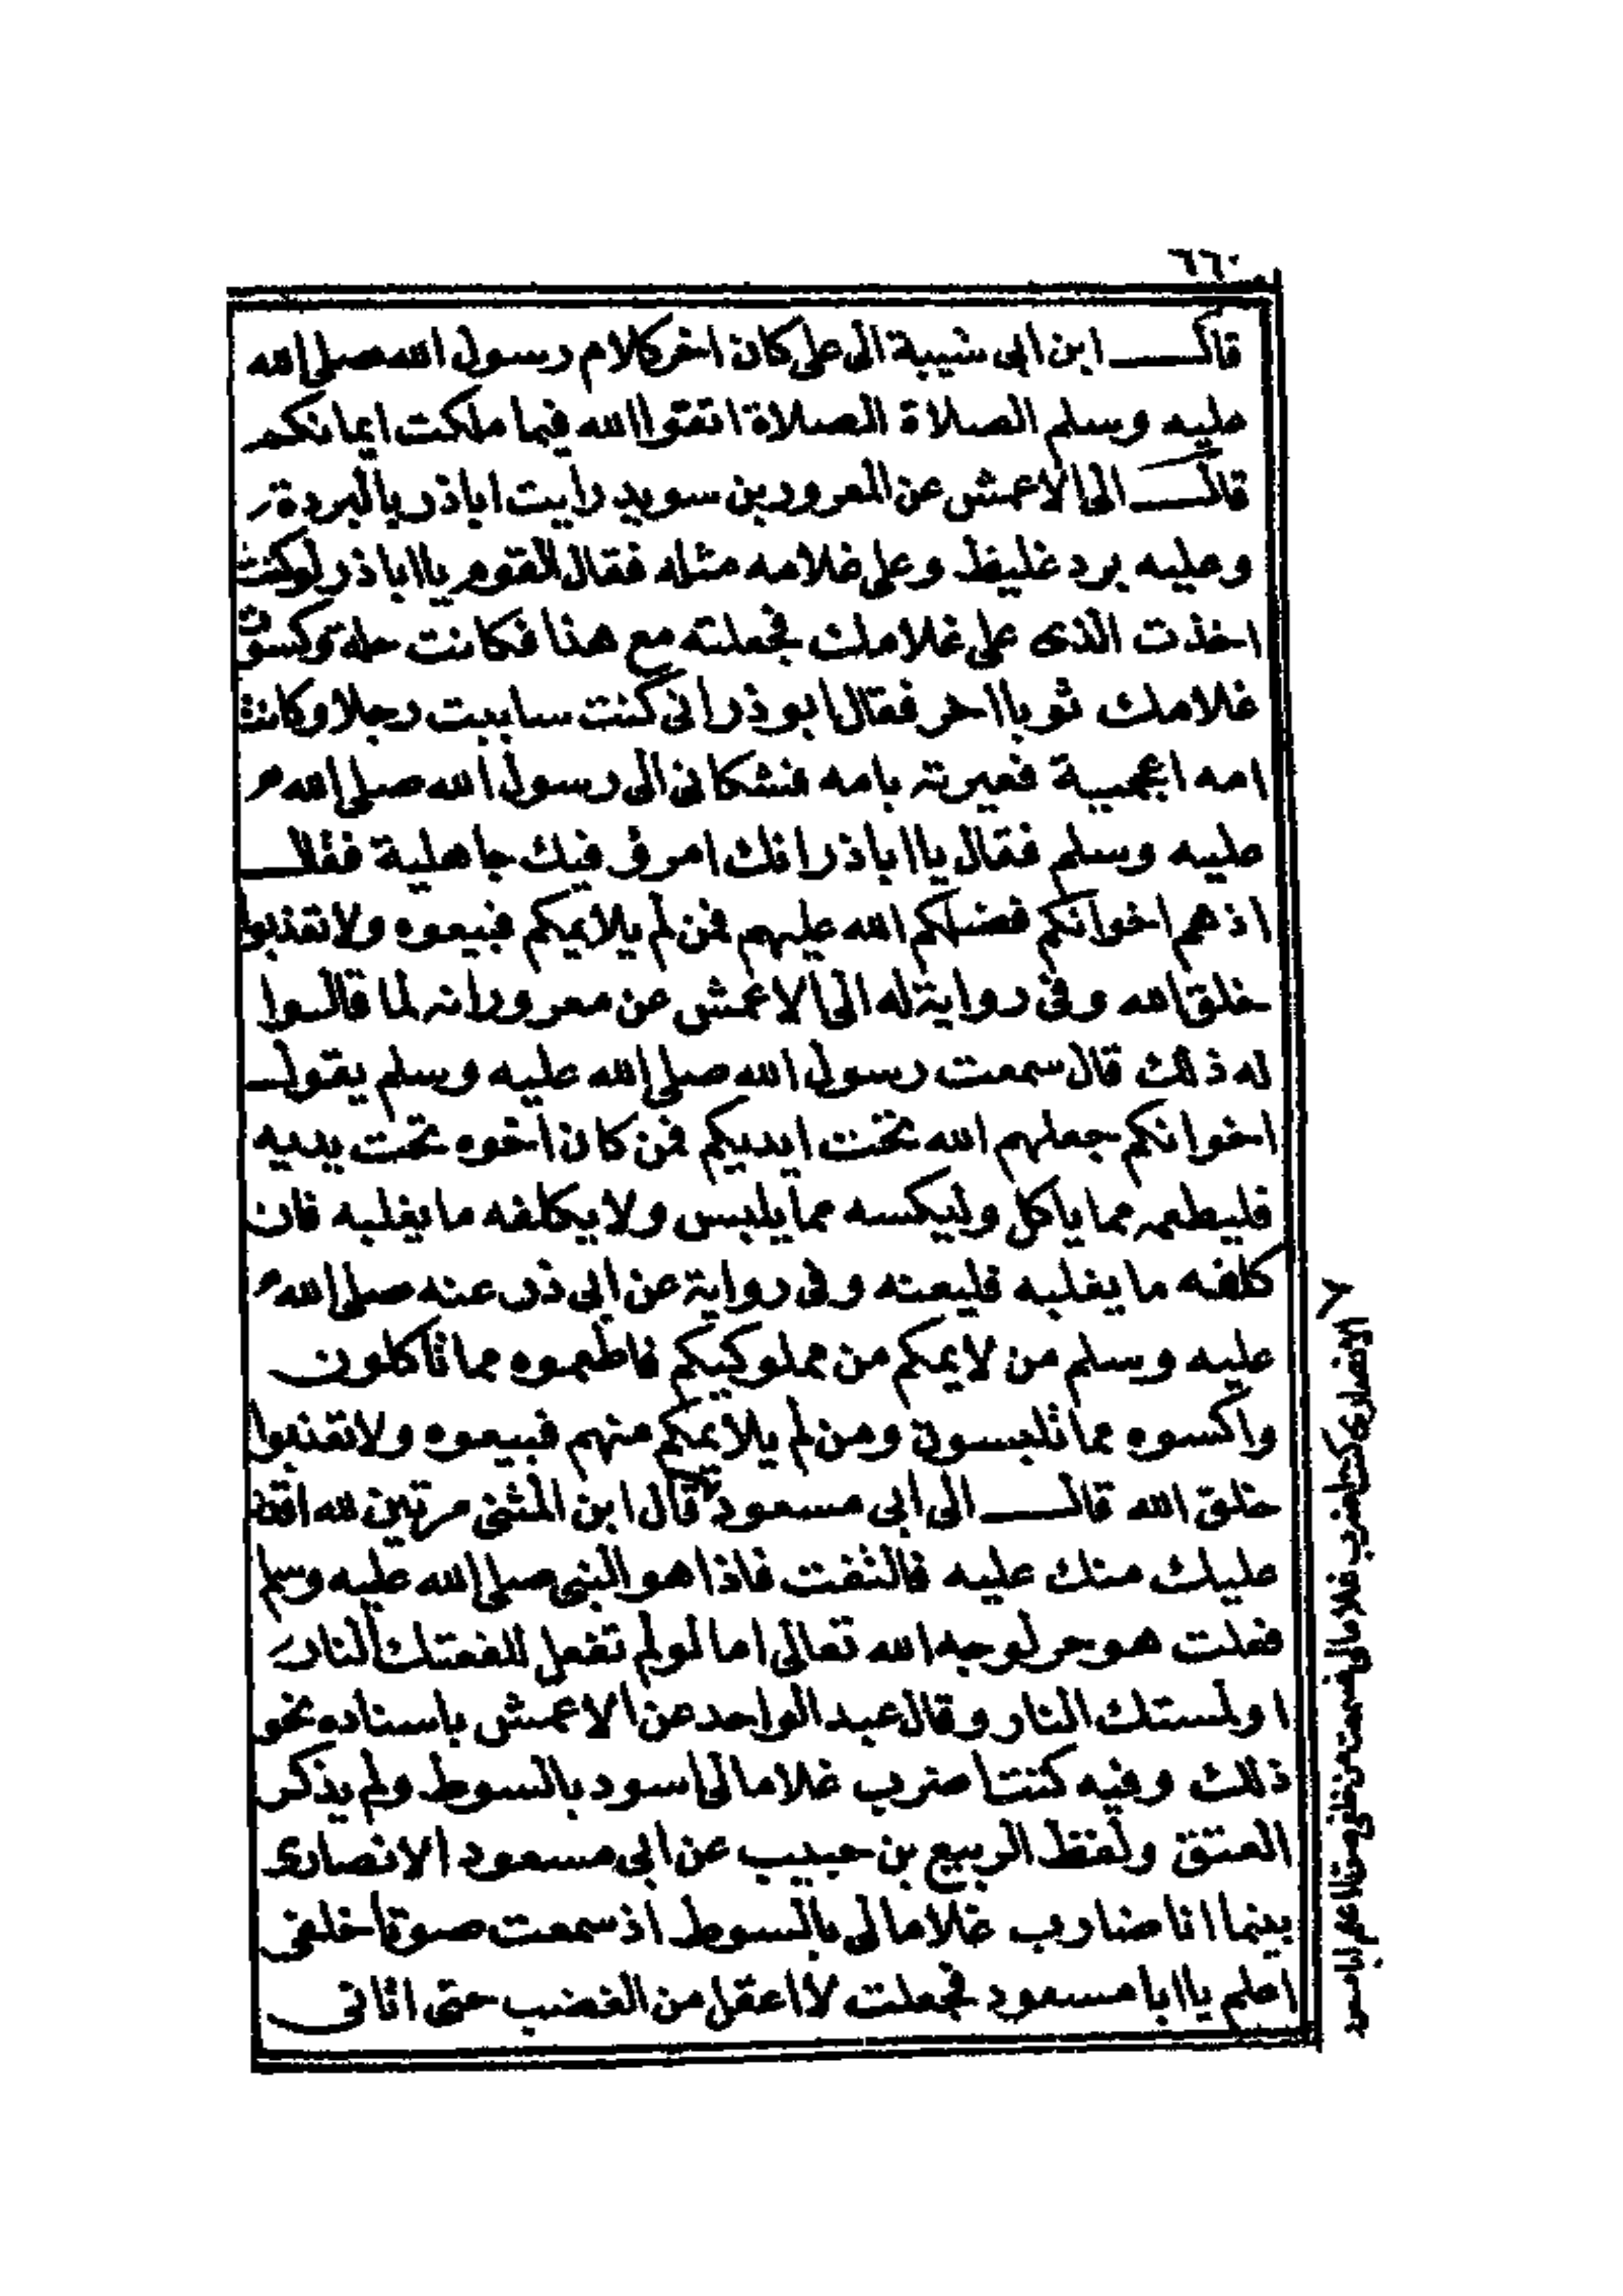 ٦٦٠
قال ابن ابى شيبة الى على كان اخر كلام رسول الله صلى الله
عليه وسلم الصلاة الصلاة اتقوا الله فيما ملكت ايمانكم
قال الى الاعمش عن المعرور بن سويد رايت اباذر بالبردة
وعليه برد غليظ وعلى غلامه مثله فقال القوم يا اباذر لوكنت
اخذت الذى على غلامك فجعلته مع هذا فكانت حلة وكسوت
غلامك ثوبا اخر فقال ابوذر انى كنت ساببت رجلا وكانت
امه اعجمية فعيرته بامه فشكانى الى رسول الله صلى الله
عليه وسلم فقال يا اباذر انك امرؤ فيك جاهلية فقال
اذهم اخوانكم فضلكم الله عليهم فمن لم يلائمكم فبيعوه ولاتعذبوا
خلق الله وفى رواية له الى الاعمش عن معرور انه لما قالوا
له ذلك قال سمعت رسول الله صلى الله عليه وسلم يقول
اخوانكم جعلهم الله تحت ايديكم فمن كان اخوه تحت يديه
فليطعمه مما ياكل وليكسه مما يلبس ولا يكلفه ما يغلبه فان
كلفه ما يغلبه فليعنه وفى رواية عن ابى ذر عنه صلى الله
عليه وسلم من لايمكم من مملوكيكم فاطعموه مما تاكلون
واكسوه مما تلبسون ومن لم يلائمكم منهم فبيعوه ولاتعذبوا
خلق الله قال الى ابى مسعود قال ابن المثنى مرتين لله اقدر
عليك منك عليه فالتفت فاذا هو النبى صلى الله عليه وسلم
فقلت هو حر لوجه الله تعالى اما لو لم تفعل للفعتك النار
او لمستك النار وقال عبد الواحد عن الاعمش باسناده نحو
ذلك وفيه كنت اضرب غلاما لى اسود بالسوط ولم يذكر
العتق ولفظ الربيع بن حبيب عن ابى مسعود الانصارى
بينما انا ضارب غلاما لى بالسوط اذ سمعت صوتا خلفى
اعلم يا ابا مسعود فجعلت لا اعقل من الغضب حتى اتانى
الانصارى كنت اضرب غلاما لى فسمعت من خلفى صوتا اعلم ابا مسعود